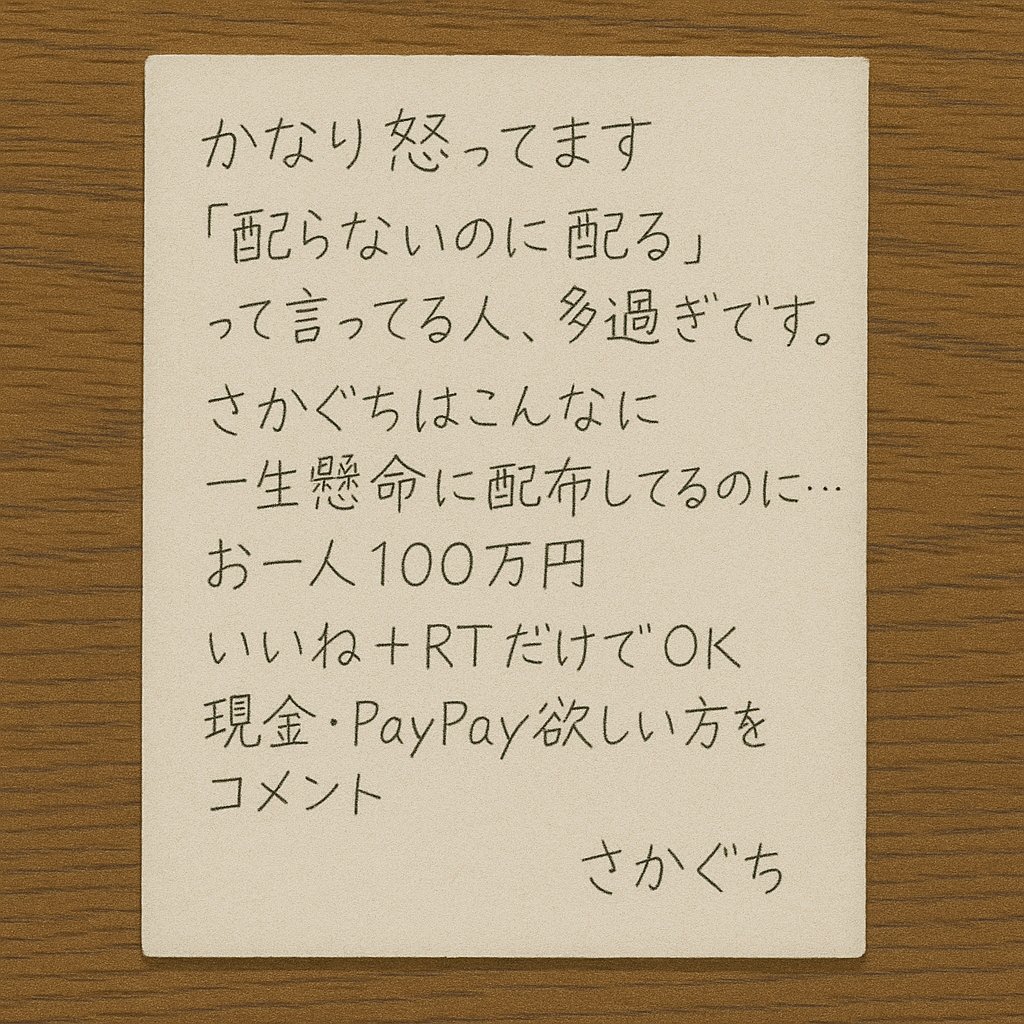 かなり怒ってます
「配らないのに配る」
って言ってる人、多過ぎです。
さかぐちはこんなに
一生懸命に配布してるのに…
お一人100万円
いいね+RTだけでOK
現金・PayPay欲しい方を
コメント
さかぐち